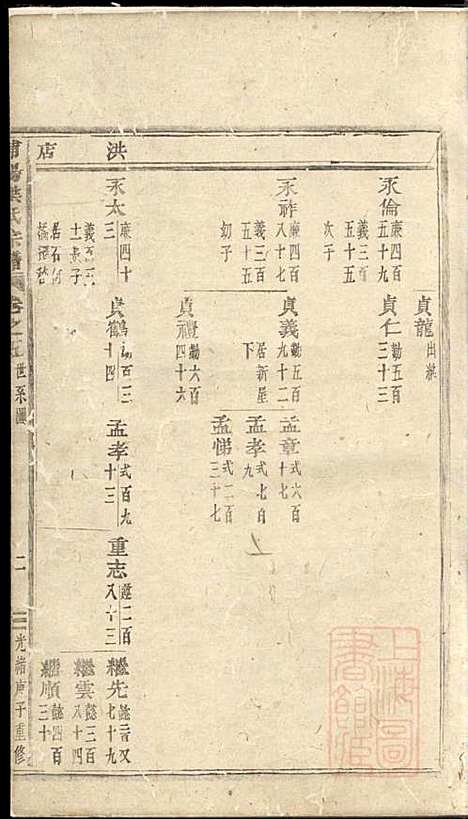 洪
店
貞龍出繼
永倫廉四百五十九義三百五十五次子
貞仁勸五百三十三
永祚廉四百八十七義三百五十五幼子
貞義勸五百九十二居新屋下
孟章式六百十七
孟孝式七百九
孟悌式二百三十七
貞禮勸六百四十六
永太廉四十三
居石
貞鶴十四
孟孝式百九十三
重志二百八十三
繼先懿七十九
繼雲懿三百八十四
繼順懿四百三十
氏宗譜
卷之
世系圖
二
光緒庚子重修
上海圖書館藏